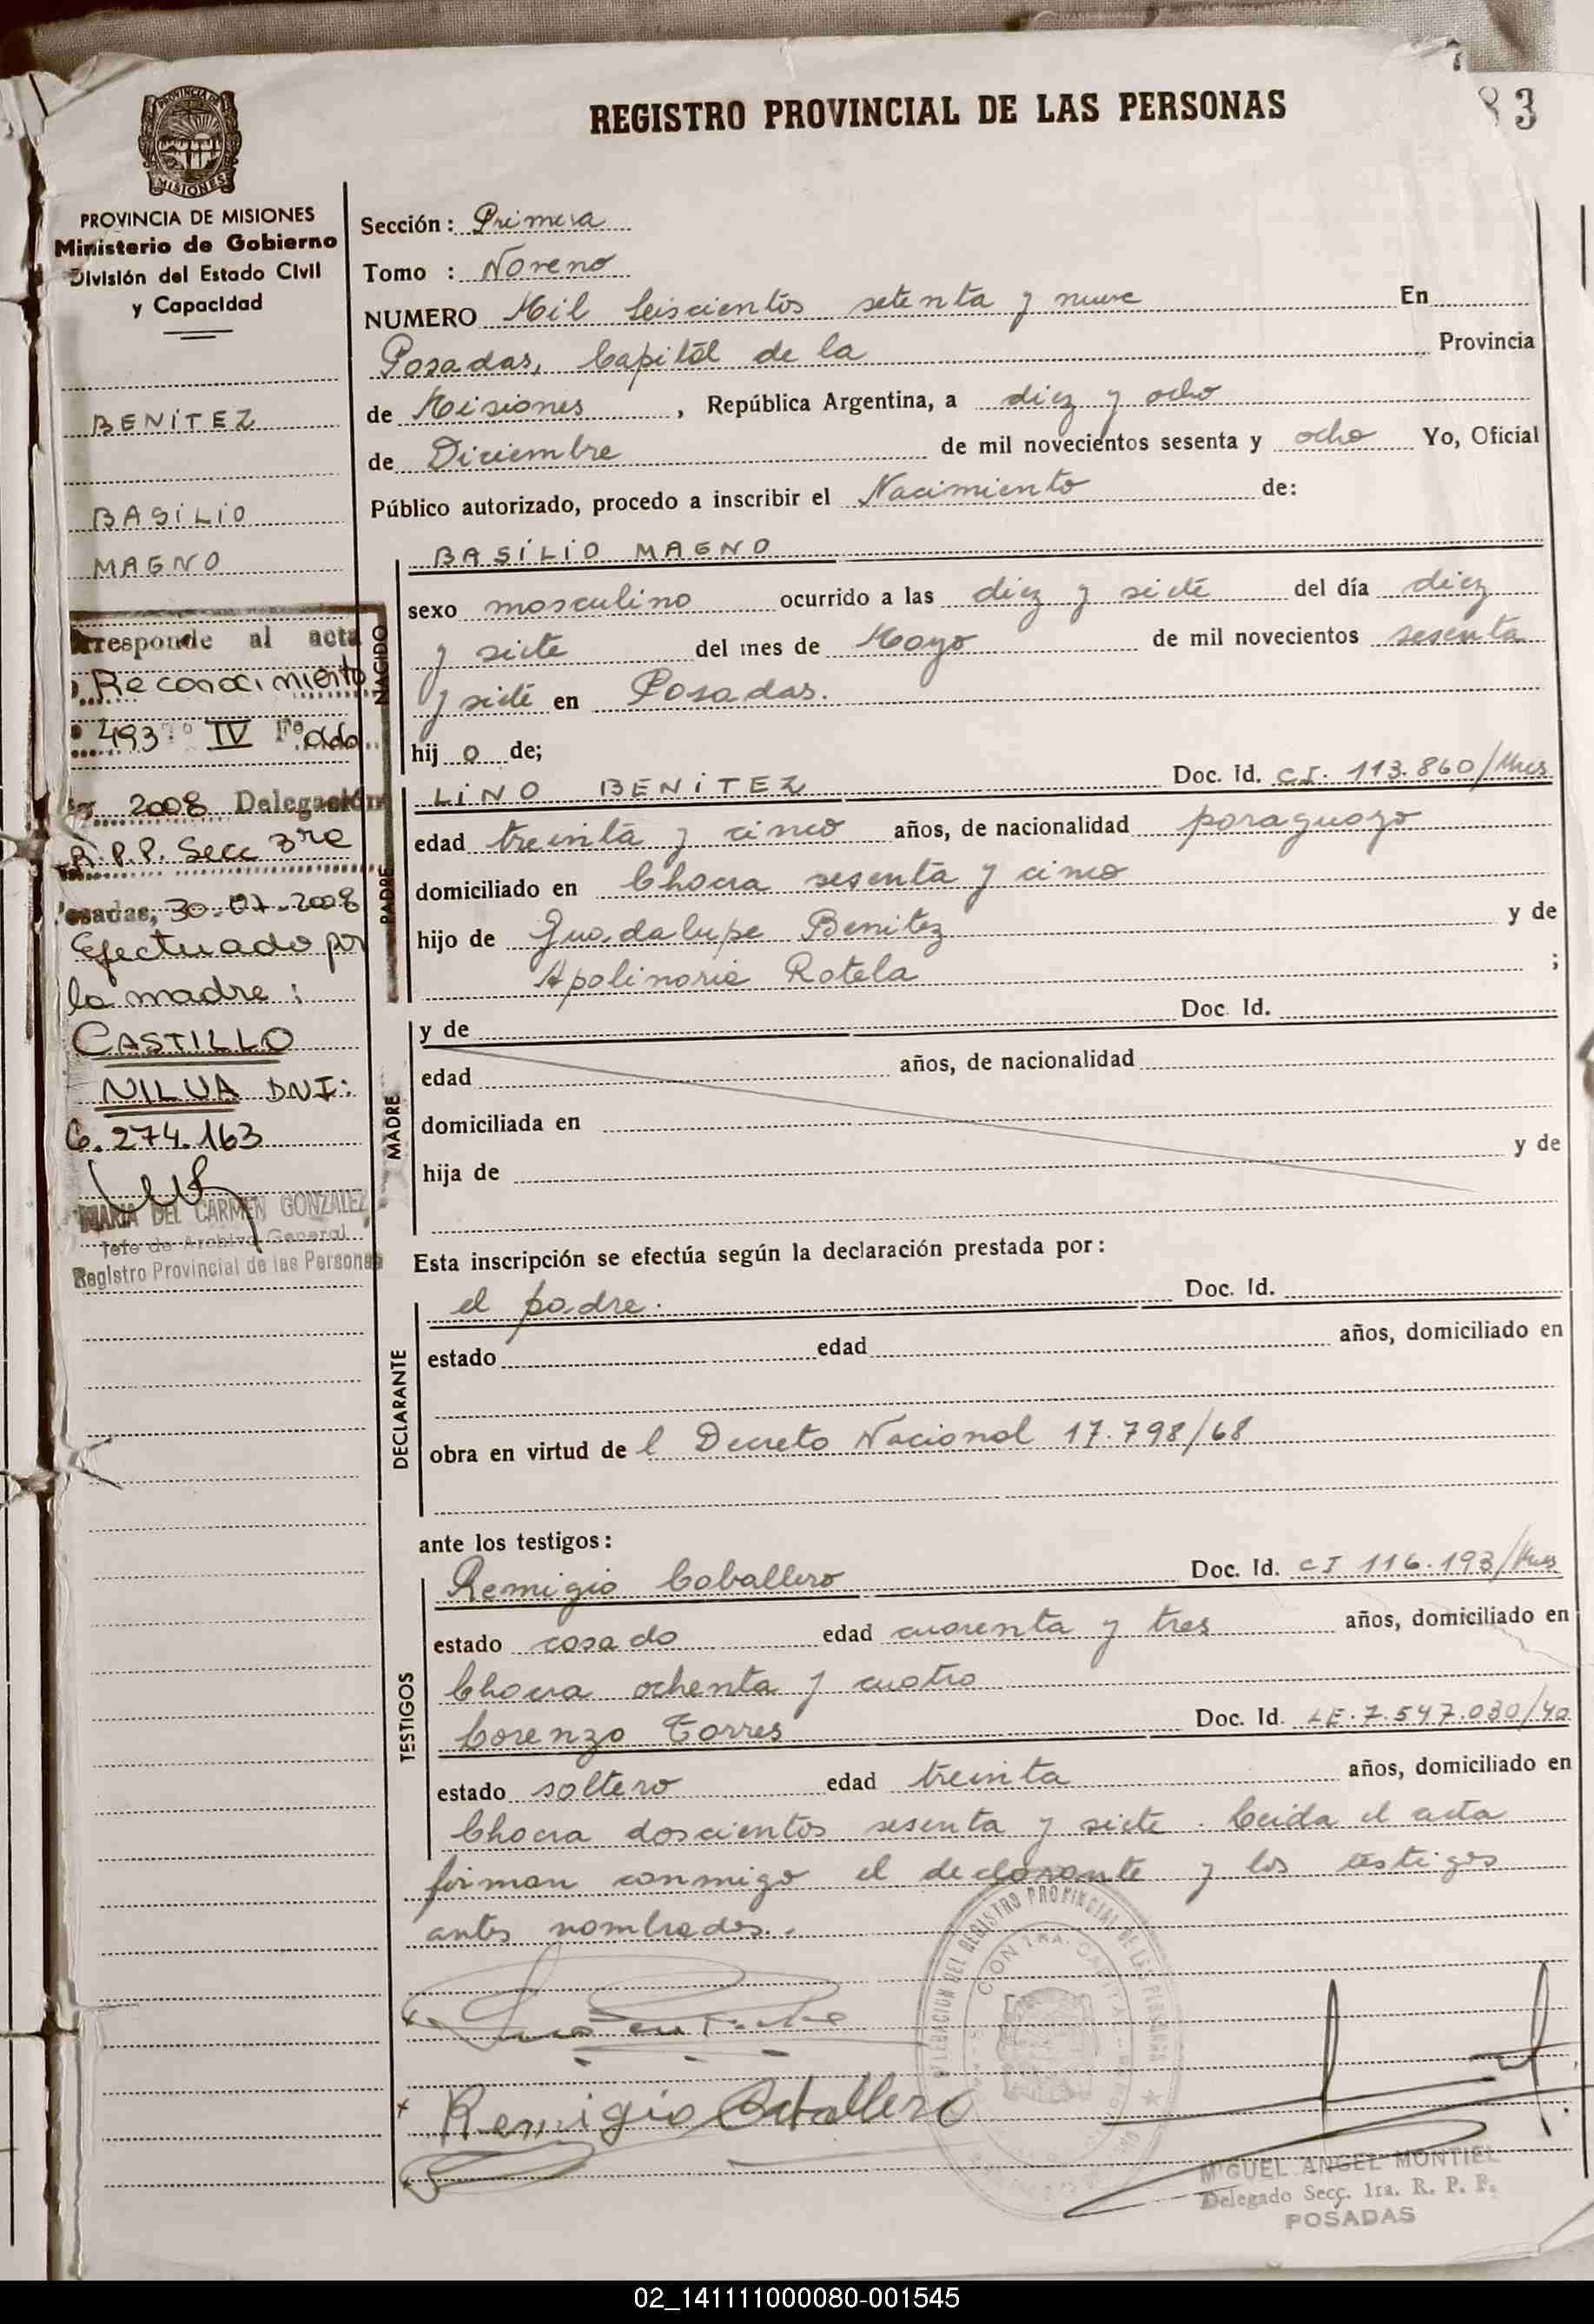 REGISTRO PROVINCIAL DE LAS PERSONAS
83
PROVINCIA DE MISIONES
PROVINCIA DE MISIONES
Ministerio de Gobierno
División del Estado Civil
y Capacidad
BENÍTEZ
BASÍLIO
MAGNO
rresponde al acta
Reconocimiento
493 IV Fº
2008 Delegación
R.P.P. Secc 3ra
osadas, 30-07-2008
Efectuado por
la madre:
CASTILLO
NILVA DNI:
6.274.163
MARIA DEL CARMEN GONZALEZ
Jefe de Archivo General
Registro Provincial de las Personas
Sección: Primera
Tomo : Noveno
NUMERO Mil Seiscientos setenta y nueve En
Posadas, Capital de la Provincia
de Misiones, República Argentina, a diez y ocho
de Diciembre de mil novecientos sesenta y ocho Yo, Oficial
Público autorizado, procedo a inscribir el Nacimiento de:
NACIDO
BASÍLIO MAGNO
sexo masculino ocurrido a las diez y siete del día diez
y siete del mes de Mayo de mil novecientos sesenta
y siete en Posadas.
hij o de;
PADRE
LINO BENÍTEZ Doc. Id. CI. 113.860/Mnes
edad treinta y cinco años, de nacionalidad paraguayo
domiciliado en Chacra sesenta y cinco
hijo de Guadalupe Benitez y de
Apolinaria Rotela ;
MADRE
y de Doc. Id.
edad años, de nacionalidad
domiciliada en
hija de y de
Esta inscripción se efectúa según la declaración prestada por:
DECLARANTE
el padre. Doc. Id.
estado edad años, domiciliado en
obra en virtud de l Decreto Nacional 17.798/68
ante los testigos:
TESTIGOS
Remigio Caballero Doc. Id. CI 116.193/Mnes
estado casado edad cuarenta y tres años, domiciliado en
Chacra ochenta y cuatro
Lorenzo Torres Doc. Id. LE.7.547.030/40
estado soltero edad treinta años, domiciliado en
Chacra doscientos sesenta y siete. Leida el acta
firman conmigo el declarante y los testigos
antes nombrados..
DELEGACION DEL REGISTRO PROVINCIAL DE LAS PERSONAS
Remigio Caballero
MIGUEL ANGEL MONTIEL
Delegado Secc. 1ra. R. P. P.
POSADAS
02_141111000080-001545